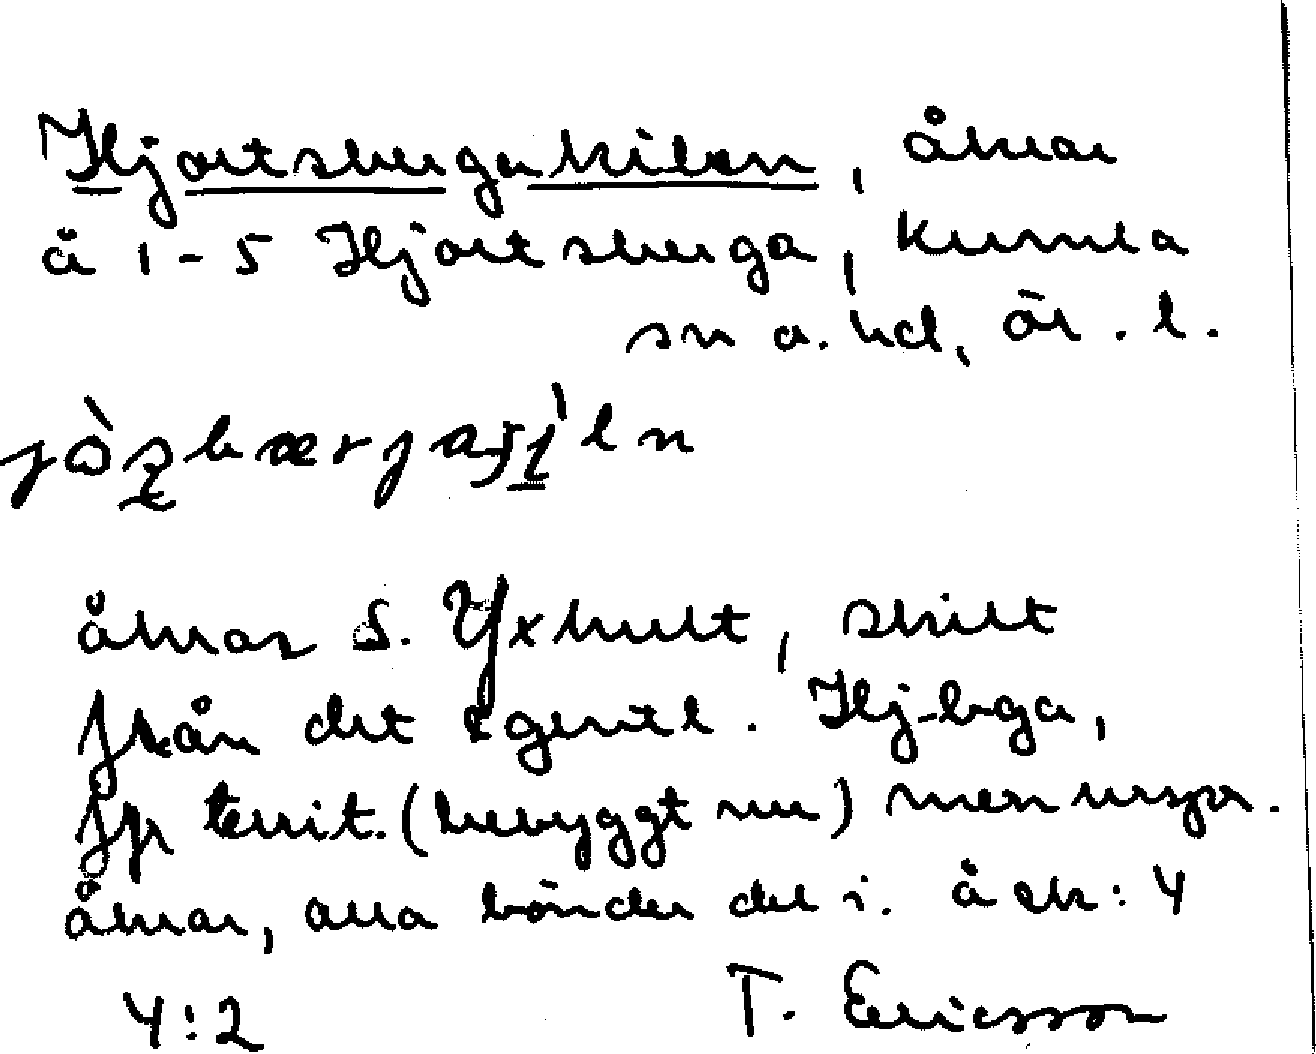 Hjortsbergakilen, åkrar
å 1-5 Hjortsberga, Kumla
sn o. hd, Ör. l.
åkrar S. Yxhult, skilt
från det egentl. Hj-bga,
jfr territ. (bebyggt nu) men urspr.
Åkrar, alla bönder del i. å ek: 4
4:2 T. Ericsson